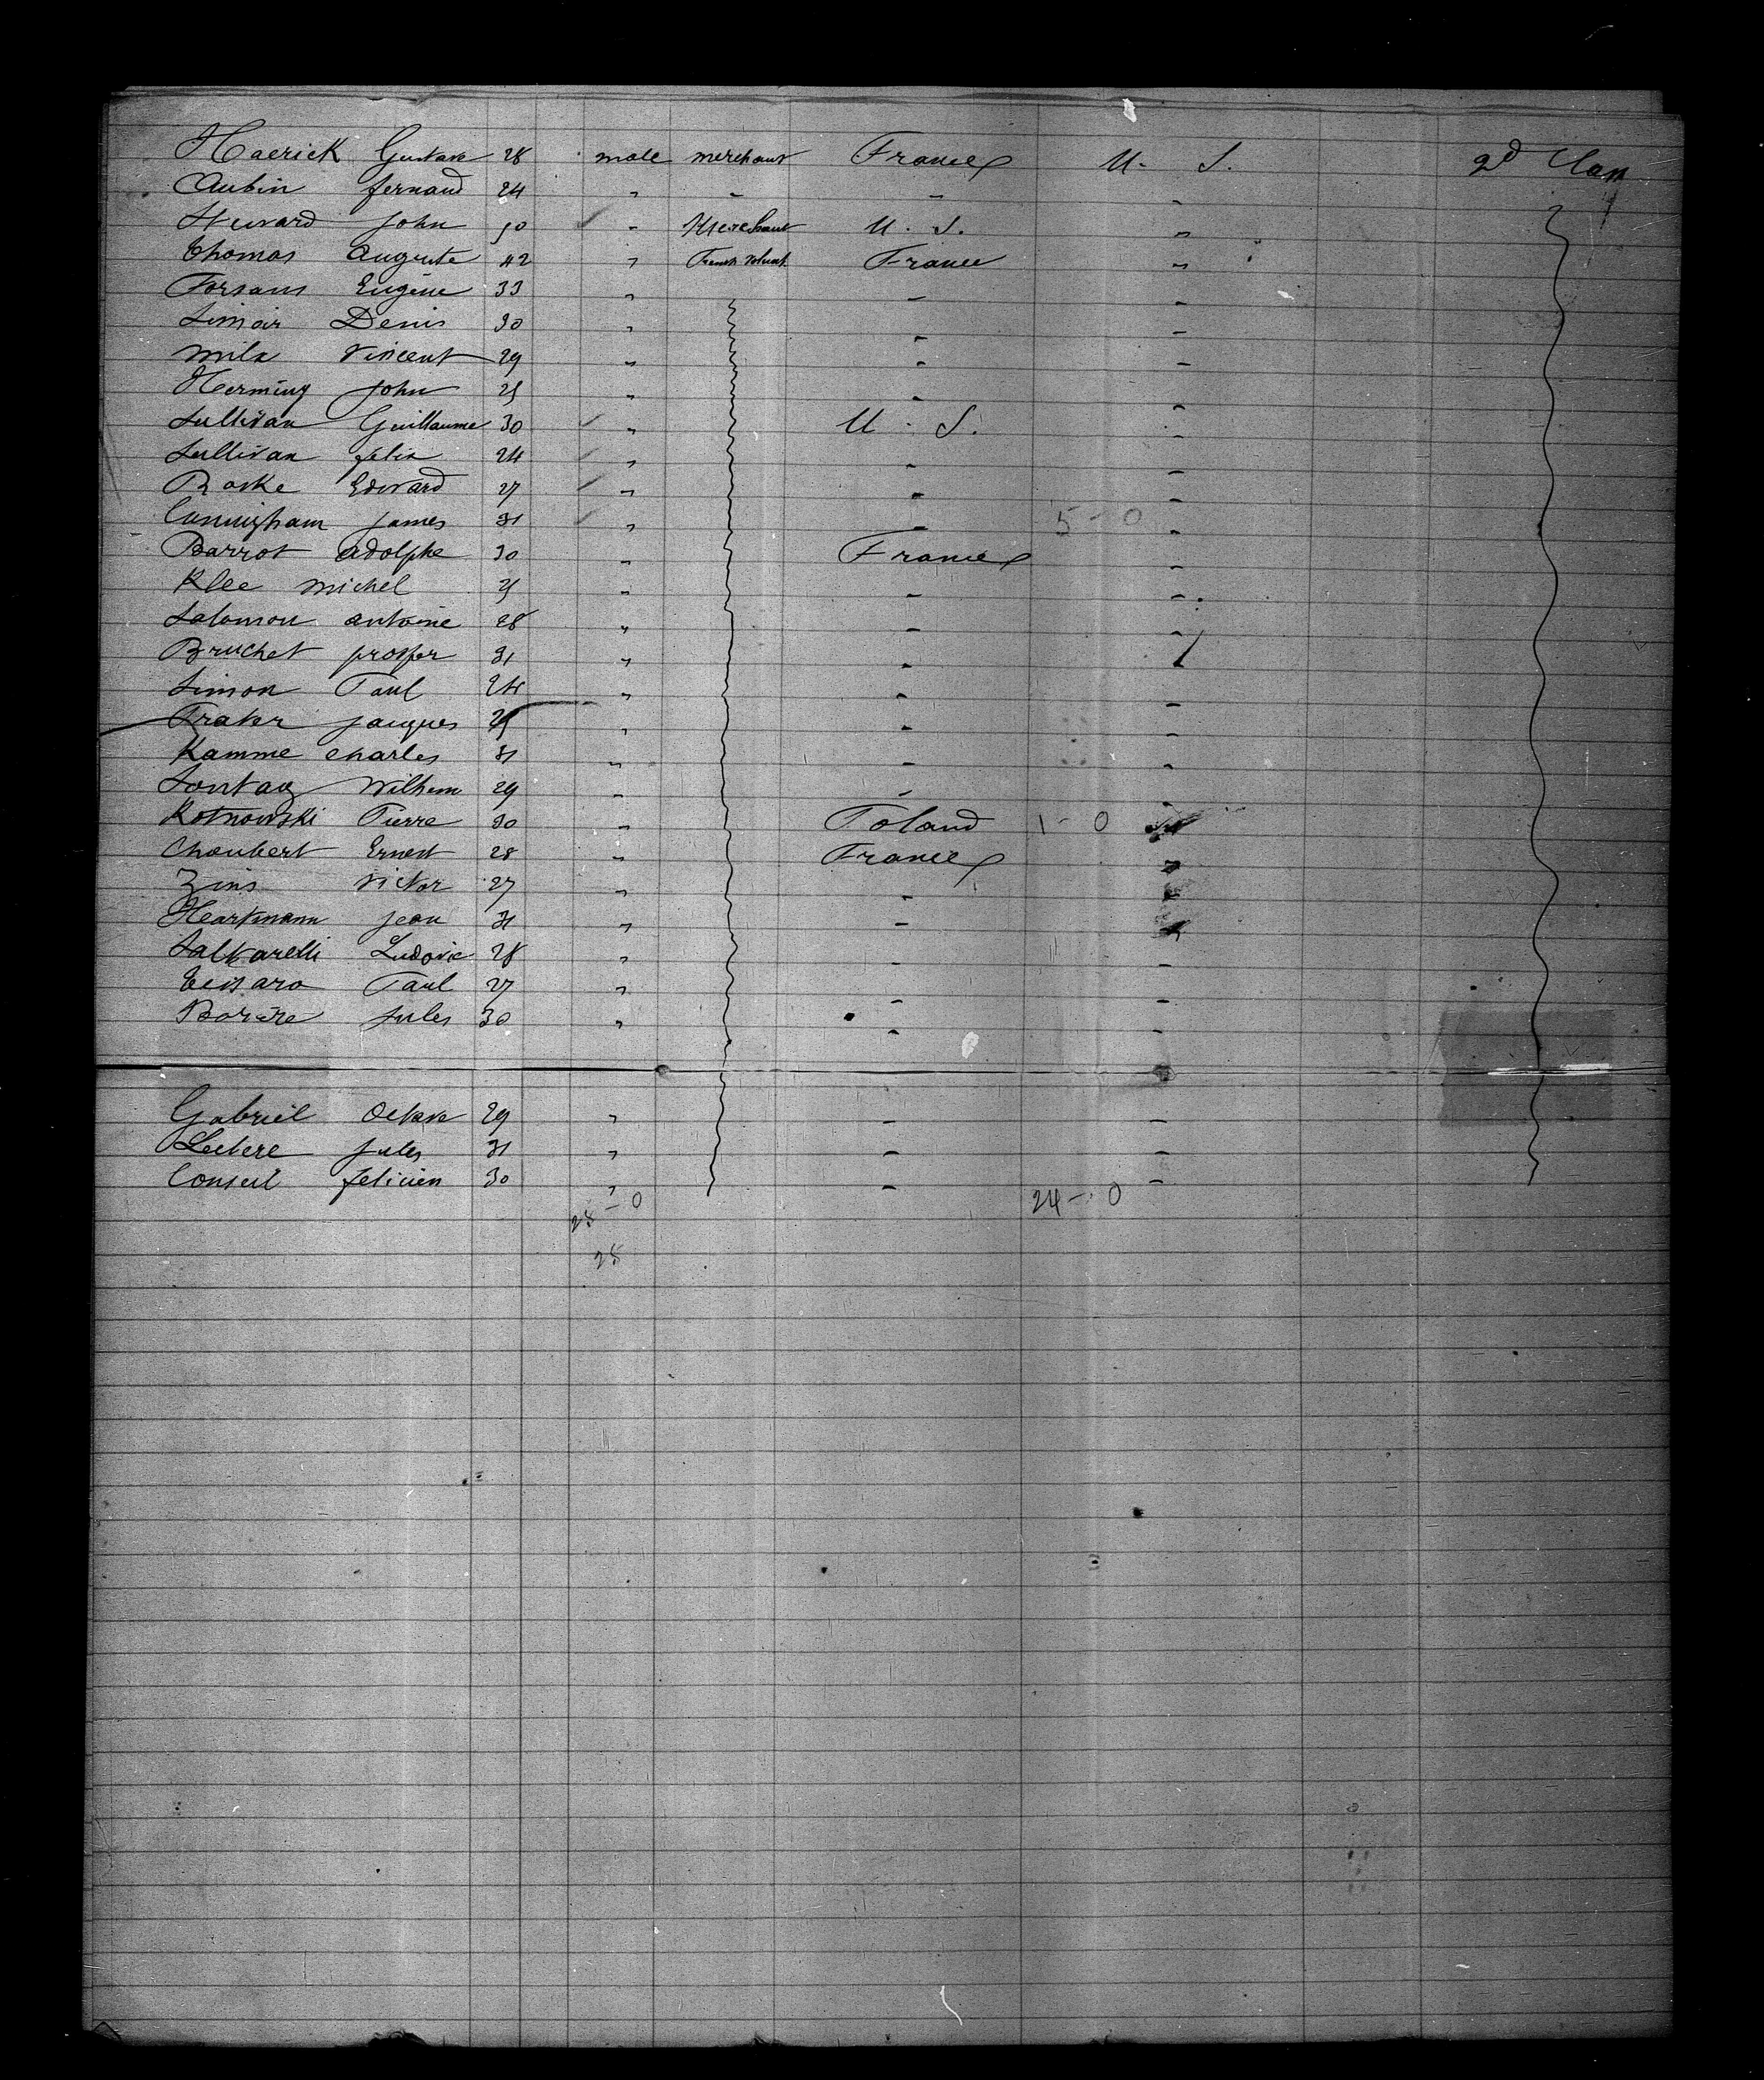 Haerick Gustave 28 male merchant France U. S. 2d Class
Aubin fernand 24 " - - -
Steward John 50 " Merchant U. S. "
Thomas Auguste 42 " French France "
Forsans Eugène 33 " - -
Simoir Denis 30 " - -
Mila Vincent 29 " - -
Herming John 25 " - -
Sullivan Guillaume 30 " U. S. -
Sullivan felix 24 " - -
Roske Edward 27 " - -
Cunnigham James 31 " - 5-0 -
Barrot adolphe 30 " France -
Klee michel 25 " - -
Salomon antoine 28 " - -
Bruchet prosper 31 " - -
Simon Paul 24 " - -
Frater jacques 25 " - -
Kamme charles 31 " - -
Sontag Wilhem 29 " - -
Kotnowski Pierre 30 " Poland 1-0
Choubert Ernest 28 " France "
Zins Victor 27 " -
Heartmann jean 31 " -
Saltarelli Ludovic 28 " - -
Paul 27 " - -
Barière Jules 30 " - -
Gabriel Octave 29 " - -
Leclere Jules 31 " - -
Conseil felicien 30 " - -
28-0 24-0
28